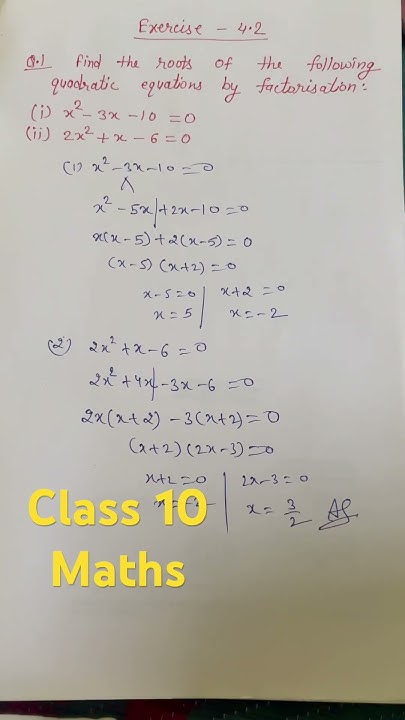 Exercise - 4.2
Q.1 Find the roots of the following
quadratic equations by factorisation:
(i) x² - 3x - 10 = 0
(ii) 2x² + x - 6 = 0
(1) x² - 3x - 10 = 0
x² - 5x + 2x - 10 = 0
x(x - 5) + 2(x - 5) = 0
(x - 5) (x + 2) = 0
x - 5 = 0 | x + 2 = 0
x = 5 | x = - 2
(2) 2x² + x - 6 = 0
2x² + 4x - 3x - 6 = 0
2x(x + 2) - 3(x + 2) = 0
(x + 2) (2x - 3) = 0
x + 2 = 0 | 2x - 3 = 0
x = 3/2
Class 10
Maths